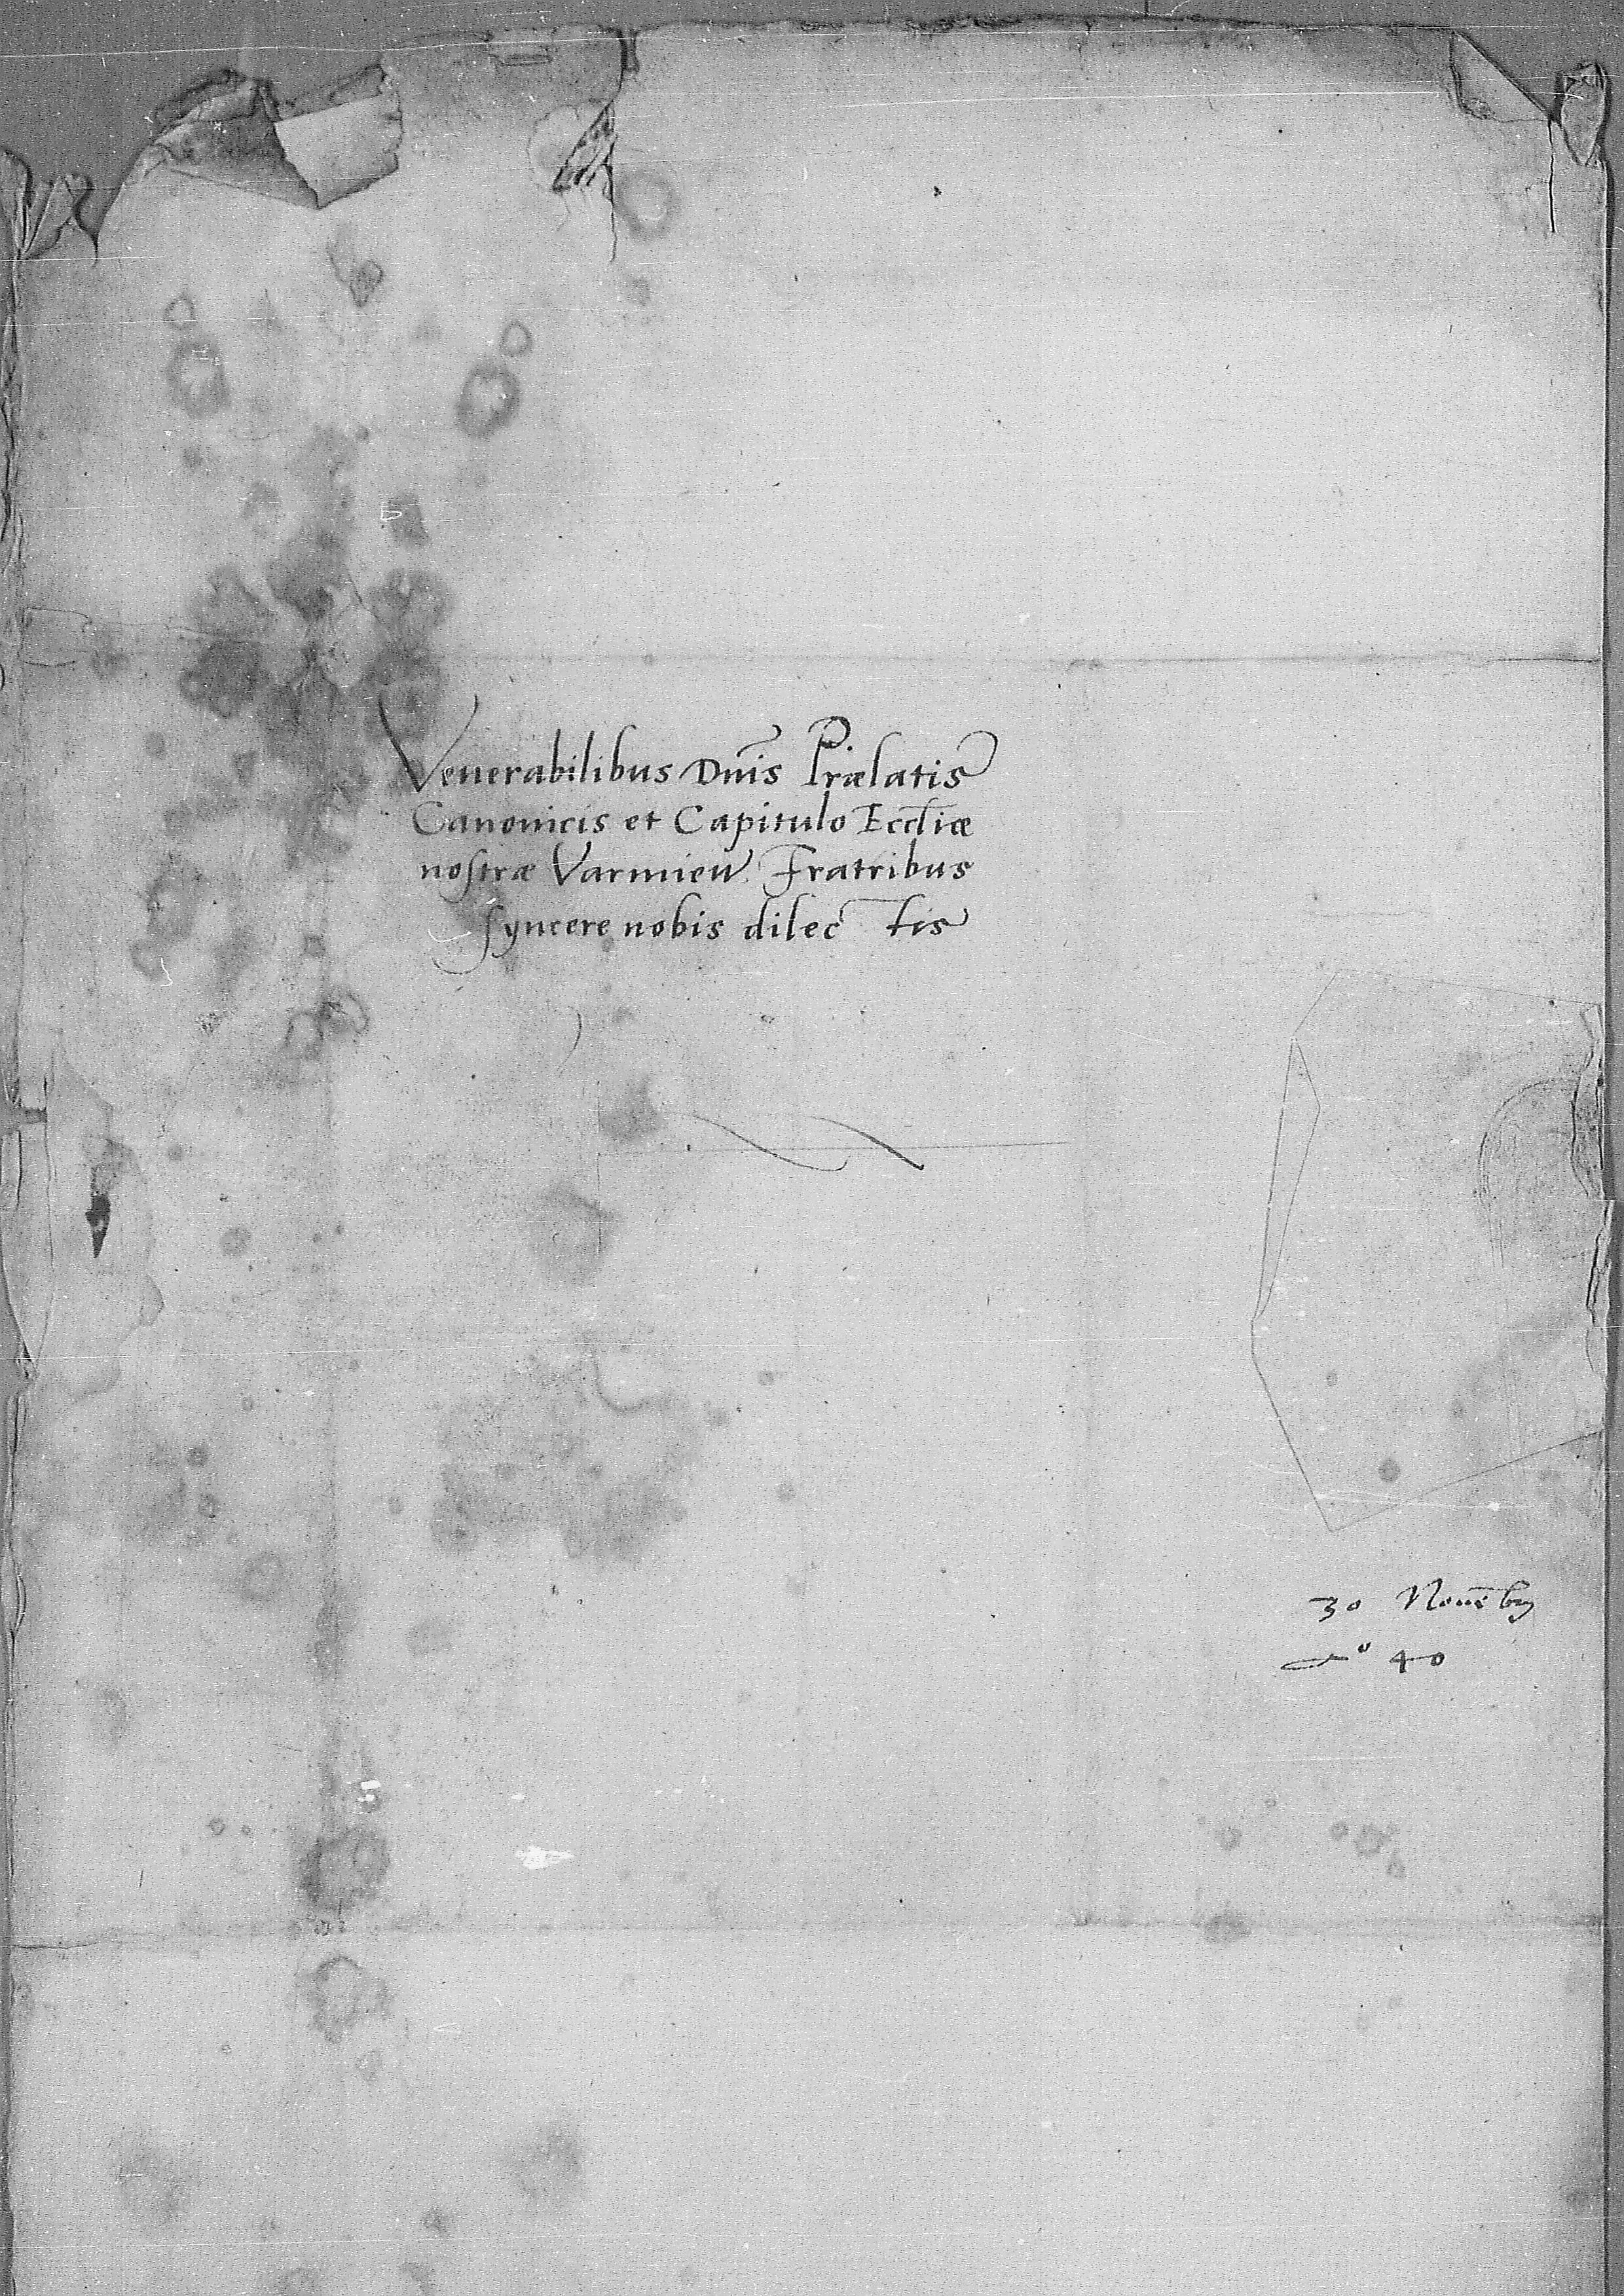 Venerabilibus Dnīs Prælatis
Canonicis et Capitulo Eccl̄iæ
nostræ Varmien̄ Fratribus
syncere nobis dilec tis
30 Novēbr
40